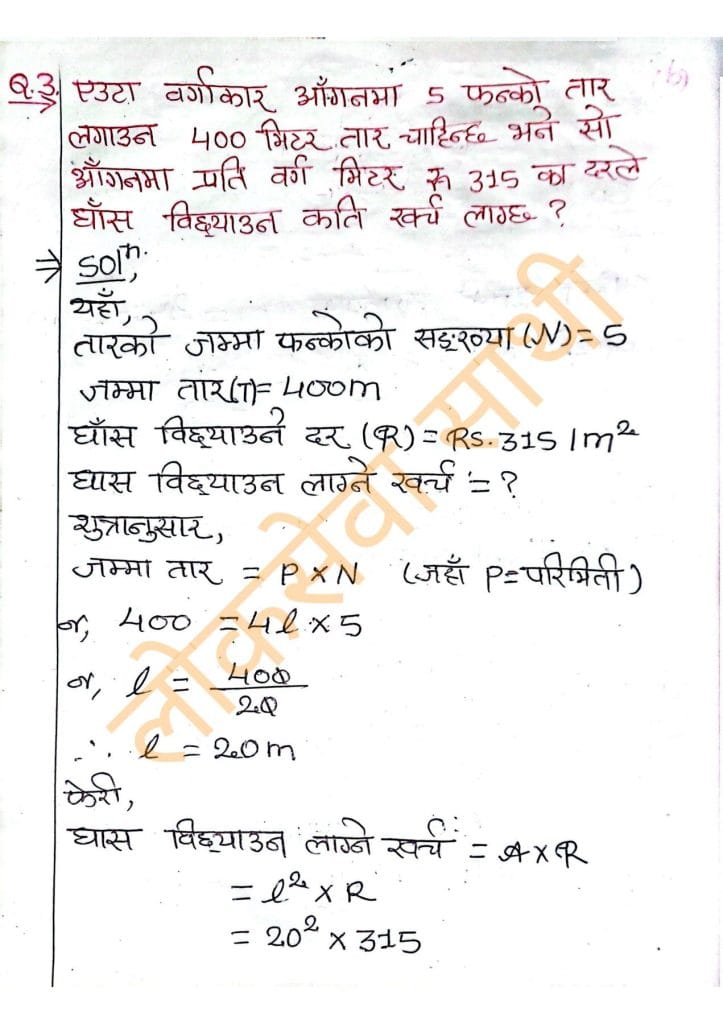 Q.3. एउटा वर्गाकार आँगनमा 5 फन्को तार
लगाउन 400 मिटर तार चाहिन्छ भने सो
आँगनमा प्रति वर्ग मिटर रू 315 का दरले
घाँस विछ्याउन कति खर्च लाग्छ ?
⇒ Solⁿ,
यहाँ,
तारको जम्मा फन्कोको सङ्ख्या (N) = 5
जम्मा तार(T) = 400m
घाँस विछ्याउने दर (R) = Rs. 315 / m²
घास विछ्याउन लाग्ने खर्च = ?
शुत्रानुसार,
जम्मा तार = P × N (जहाँ P = परिमिती)
or, 400 = 4l × 5
or, l = 400
20
∴ l = 20 m
फेरी,
घास विछ्याउन लाग्ने खर्च = A × R
= l² × R
= 20² × 315
लोकसेवा साथी